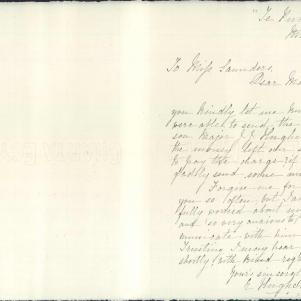 "Te Hu
To Miss Saunders,
Dear Ma
you kindly let me k
were able to send the
son Major J. J. Hughe
the money left our
to pay the charge if
gladly send some m
Forgive me for
you so often, but I a
fully worried about my
and so very anxious to
municate with him
Trusting I may hear
shortly (with kind reg
Yours sincerely
E. Hughes